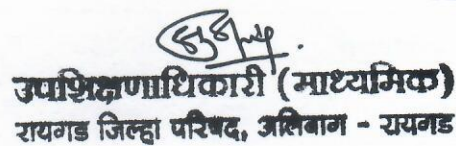 उपशिक्षणाधिकारी (माध्यमिक)
रायगड जिल्हा परिषद, अलिबाग - रायगड